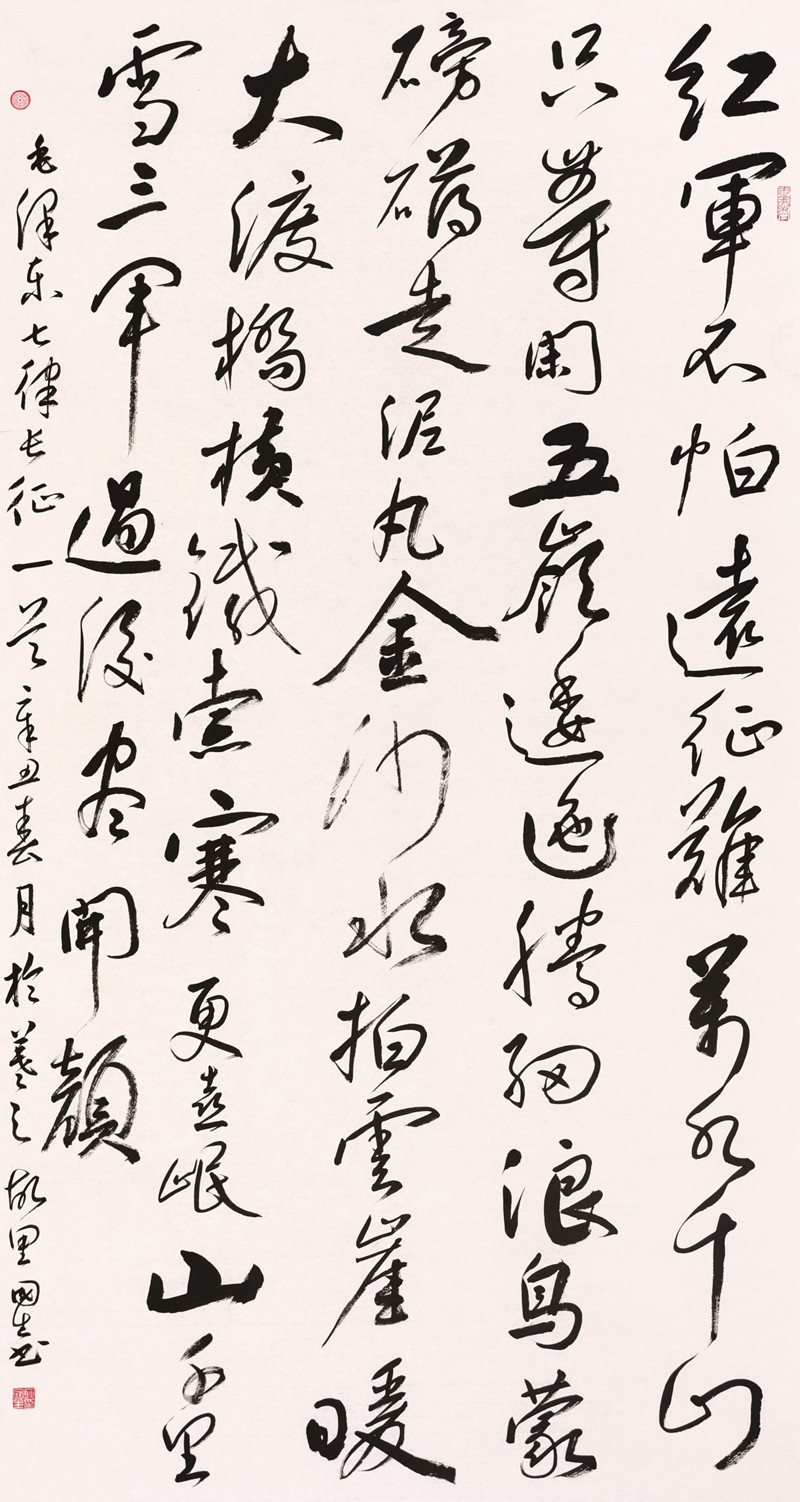 紅軍不怕遠征難萬水千山
只等閑五嶺逶迤騰細浪烏蒙
磅礴走泥丸金沙水拍雲崖暖
大渡橋橫鐵索寒更喜岷山千里
雪三軍過後盡開顏
毛澤東七律長征一首 辛丑春月於羲之故里國書